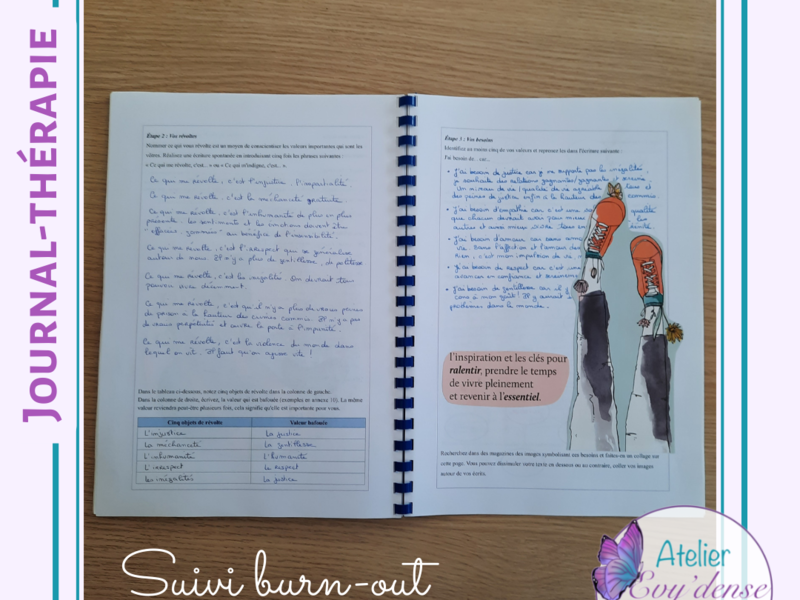 JOURNAL-THÉRAPIE
Étape 2 : Vos révoltes
Nommer ce qui vous révolte est un moyen de conscientiser les valeurs importantes qui sont les
vôtres. Réalisez une écriture spontanée en introduisant cinq fois les phrases suivantes :
« Ce qui me révolte, c'est... » ou « Ce qui m'indigne, c'est... ».
Ce qui me révolte, c'est l'injustice, l'impartialité
Ce qui me révolte, c'est la méchanceté gratuite
Ce qui me révolte, c'est l'inhumanité de plus en plus
présente. Les sentiments et les émotions doivent être
au bénéfice de l'insensibilité.
Ce qui me révolte, c'est l'irrespect qui se généralise
autour de nous. Il n'y a plus de gentillesse, de politesse
Ce qui me révolte, c'est les inégalités. On devrait tous
Ce qui me révolte, c'est qu'il n'y a plus de vraies peines
de prison à la hauteur des crimes commis. Il n'y a pas
de vraies et ouvre la porte à l'impunité.
Ce qui me révolte, c'est la violence du monde dans
lequel on vit. Il faut qu'on agisse vite !
Dans le tableau ci-dessous, notez cinq objets de révolte dans la colonne de gauche.
Dans la colonne de droite, écrivez, la valeur qui est bafouée (exemples en annexe 10). La même
valeur reviendra peut-être plusieurs fois, cela signifie qu'elle est importante pour vous.
Cinq objets de révolte Valeur bafouée
L'injustice La justice
La méchanceté La gentillesse
L'inhumanité L'humanité
L'irrespect Le respect
Les inégalités La justice
Étape 3 : Vos besoins
Identifiez au moins cinq de vos valeurs et reprenez les dans l'écriture suivante :
J'ai besoin de...car...
J'ai besoin de justice car je ne supporte pas les inégalités.
je souhaite des relations gagnantes/gagnants et
un niveau de vie / qualité de vie agréable tous et
des peines de justice enfin à la hauteur des commis
J'ai besoin d'empathie car c'est une qualité
que chacun devrait avoir pour mieux les
autres et mieux vivre.
J'ai besoin d'amour car sans amour
vie. Sans l'affection et l'amour de
rien, c'est mon impulsion de vie,
J'ai besoin de respect car c'est une
avancer en confiance et sereinement
J'ai besoin de gentillesse car il y
cons à mon goût ! Il y aurait
problèmes dans le monde.
l'inspiration et les clés pour
ralentir, prendre le temps
de vivre pleinement
et revenir à l'essentiel.
Recherchez dans des magazines des images symbolisant ces besoins et faites-en un collage sur
cette page. Vous pouvez dissimuler votre texte en dessous ou au contraire, coller vos images
autour de vos écrits.
Suivi burn-out
Atelier
Evy'dense